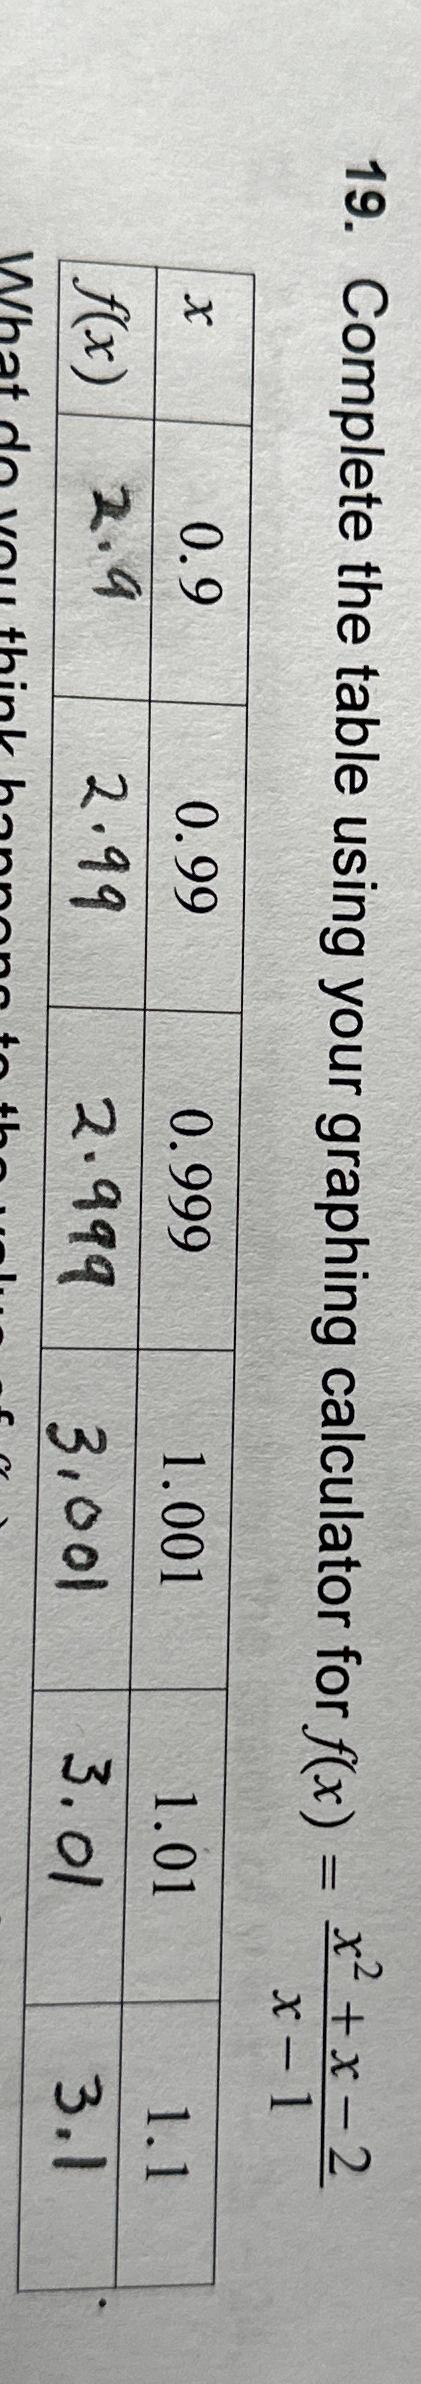 19. Complete the table using your graphing calculator for f(x) = (x² + x − 2)/(x − 1)
x 0.9 0.99 0.999 1.001 1.01 1.1
f(x) 2.9 2.99 2.999 3.001 3.01 3.1
What do you think happens to the value of